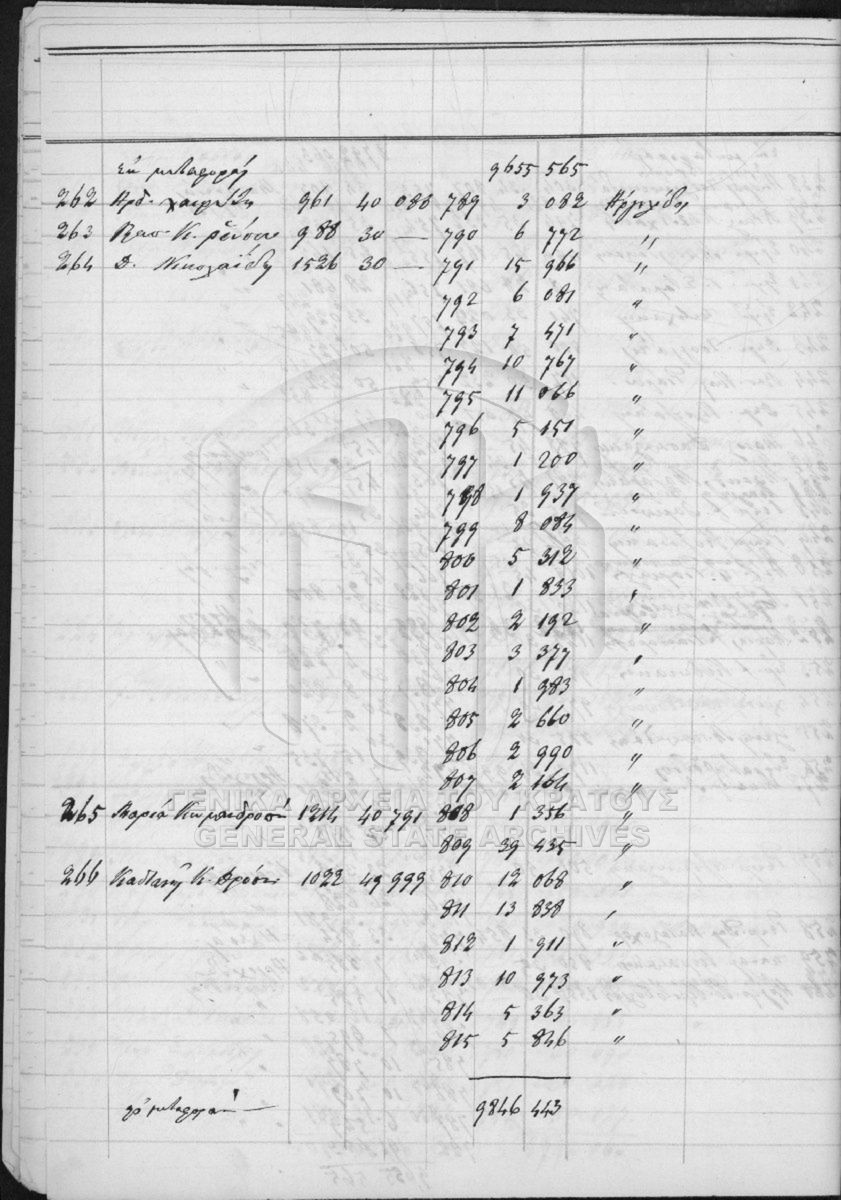 Ἐκ μεταφορᾶς 9655 565
262 961 40 088 789 3 082
263 988 30 — 790 6 772 "
264 Δ. Νικολαΐδης 1526 30 — 791 15 966 "
792 6 081 "
793 7 471 "
794 10 767 "
795 11 066 "
796 5 151 "
797 1 200 "
798 1 937 "
799 8 084 "
800 5 312 "
801 1 833 "
802 2 192 "
803 3 377 "
804 1 983 "
805 2 660 "
806 2 990 "
807 2 164 "
265 Μαρία 1214 40 791 808 1 356 "
ΓΕΝΙΚΑ ΑΡΧΕΙΑ ΤΟΥ ΚΡΑΤΟΥΣ
GENERAL STATE ARCHIVES
809 39 435 "
266 1022 49 999 810 12 068 "
811 13 838 "
812 1 911 "
813 10 973 "
814 5 363 "
815 5 846 "
9846 443